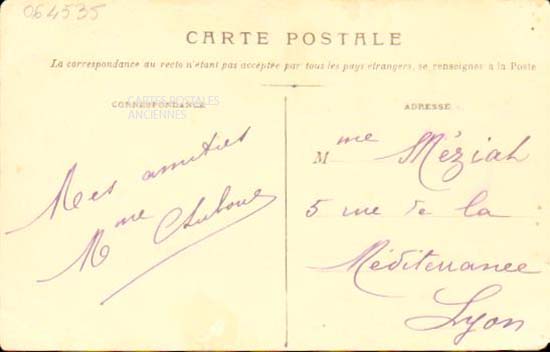 064535
CARTE POSTALE
La correspondance au recto n'étant pas acceptée par tous les pays étrangers, se renseigner à la Poste
CORRESPONDANCE
CARTES POSTALES
ANCIENNES
Mes amitiés
Mme
ADRESSE
Mme Méziat
5 rue de la
Méditerranée
Lyon